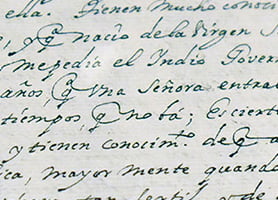 ella. Tienen mucho conoci
nacio de la Virgen S
me pedia el Indio Govern
años, q̃ Una Señora entra
tiempos, q̃ no tá; Es ciert
y tienen conocimto. de q̃ a
ica, mayor mente quando